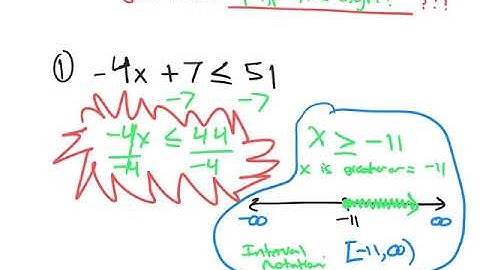 ① -4x + 7 ≤ 51
-7 -7
-4x ≤ 44
-4 -4
x ≥ -11
x is greater or = -11
-∞ -11 ∞
Interval Notation [-11, ∞)